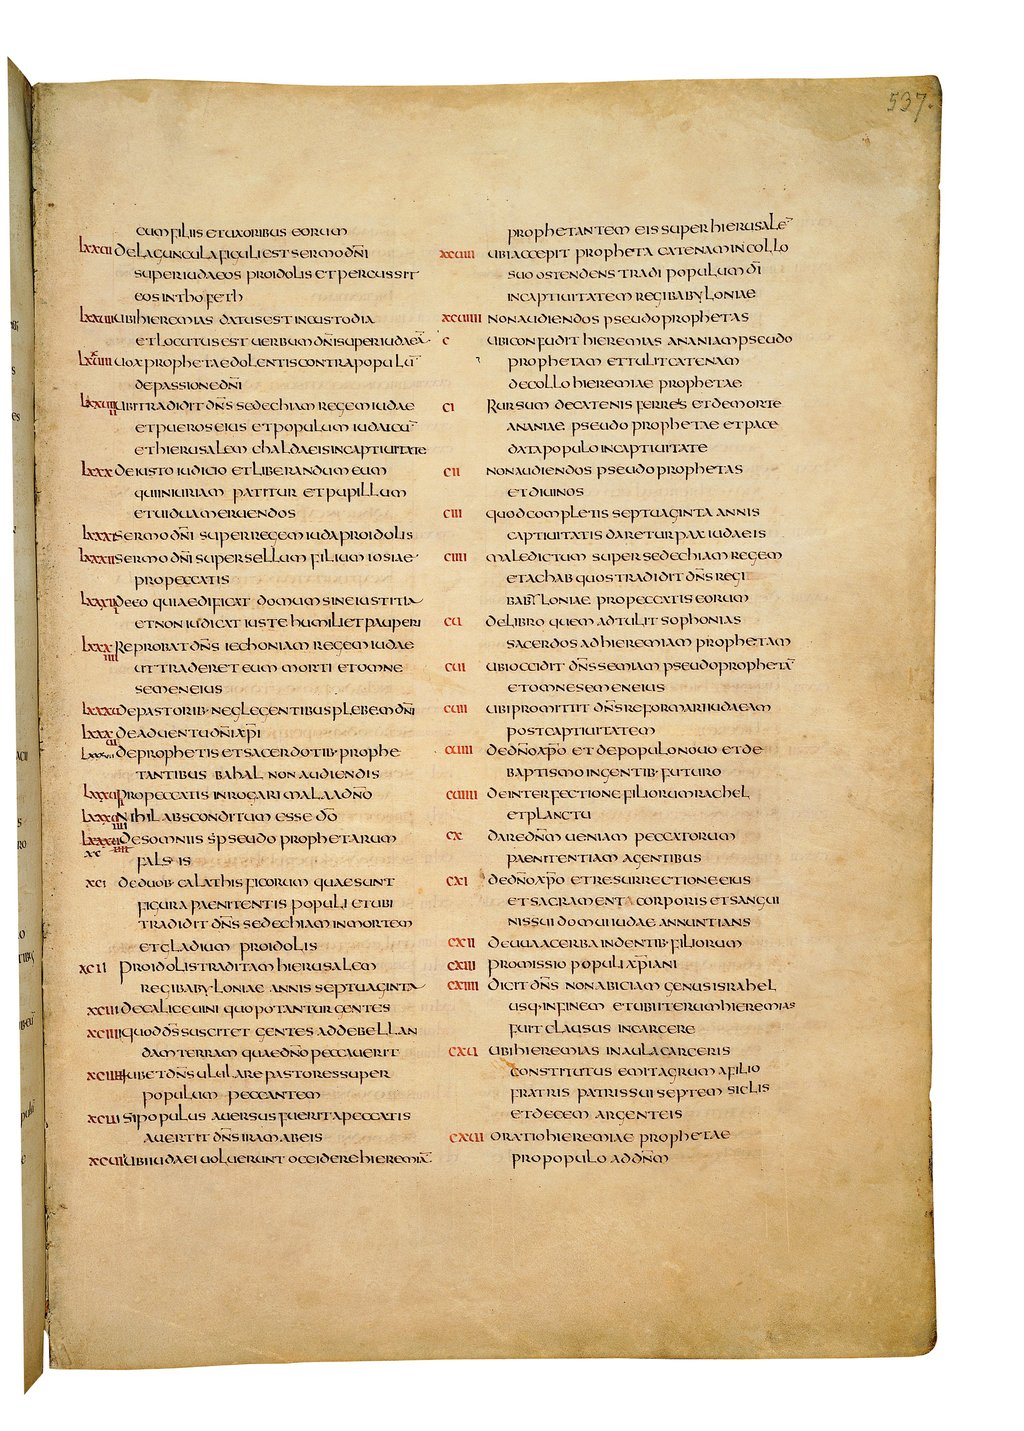 537.
cum filiis et uxoribus eorum
lxxvii de laguncula figuli est sermo dn̄i
super iudaeos pro idolis et percussit
eos in thofeth
lxxviii ubi hieremias datus est in custodia
et locutus est uerbum dn̄i super iudaeā
uox prophetae dolentis contra populū
de passione dn̄i
ubi tradidit dn̄s sedechiam regem iudae
et pueros eius et populum iudaicū
et hierusalem chaldaeis in captiuitate
lxxx de iusto iudicio et liberandum eum
qui iniuriam patitur et pupillum
et uiduam eruendos
lxxxi sermo dn̄i super regem iuda pro idolis
lxxxii sermo dn̄i super sellum filium iosiae
pro peccatis
de eo qui aedificat domum sine iustitia
et non iudicat iuste humili et pauperi
lxxxiiii reprobat dn̄s iechoniam regem iudae
ut traderet eum morti et omne
semen eius
lxxxu de pastorib· neglegentibus plebem dn̄i
lxxxui de aduentu dn̄i xp̄i
de prophetis et sacerdotib· prophe
tantibus bahal non audiendis
pro peccatis inrogari mala a dn̄o
nihil absconditum esse dō
de somniis pseudoprophetarum
falsis
xci de duob· calathis ficorum quae sunt
figura paenitentis populi et ubi
tradidit dn̄s sedechiam in mortem
et gladium pro idolis
xcii pro idolis traditam hierusalem
regi babyloniae annis septuaginta
xciii de calice uini quo potantur gentes
xciiii quod dn̄s suscitet gentes ad debellan
dam terram quae dn̄o peccauerit
iubet dn̄s ululare pastores super
populum peccantem
xcui si populus auersus fuerit a peccatis
auertit dn̄s iram ab eis
xcuii ubi iudaei uoluerunt occidere hieremiā
prophetantem eis super hierusalē
xcuiii ubi accepit propheta catenam in collo
suo ostendens tradi populum dī
in captiuitatem regi babyloniae
xcuiiii non audiendos pseudoprophetas
c ubi confudit hieremias ananiam pseudo
prophetam et tulit catenam
de collo hieremiae prophetae
ci rursum de catenis ferreis et de morte
ananiae pseudoprophetae et pace
data populo in captiuitate
cii non audiendos pseudoprophetas
et diuinos
ciii quod completis septuaginta annis
captiuitatis daretur pax iudaeis
ciiii maledictum super sedechiam regem
et achab quos tradidit dn̄s regi
babyloniae pro peccatis eorum
cu de libro quem adtulit sophonias
sacerdos ad hieremiam prophetam
cui ubi occidit dn̄s semiam pseudoprophetā
et omne semen eius
cuii ubi promittit dn̄s reformari iudaeam
post captiuitatem
cuiii de dn̄o xp̄o et de populo nouo et de
baptismo in gentib· futuro
cuiiii de interfectione filiorum rachel
et planctu
cx dare dn̄m ueniam peccatorum
paenitentiam agentibus
cxi de dn̄o xp̄o et resurrectione eius
et sacramenta corporis et sangui
nis sui domui iudae annuntians
cxii de uua acerba in dentib· filiorum
cxiii promissio populi xp̄iani
cxiiii dicit dn̄s non abiciam genus israhel
usq· in finem et ubi iterum hieremias
fuit clausus in carcere
cxu ubi hieremias in aula carceris
constitutus emit agrum a filio
fratris patris sui septem siclis
et decem argenteis
cxui oratio hieremiae prophetae
pro populo ad dn̄m